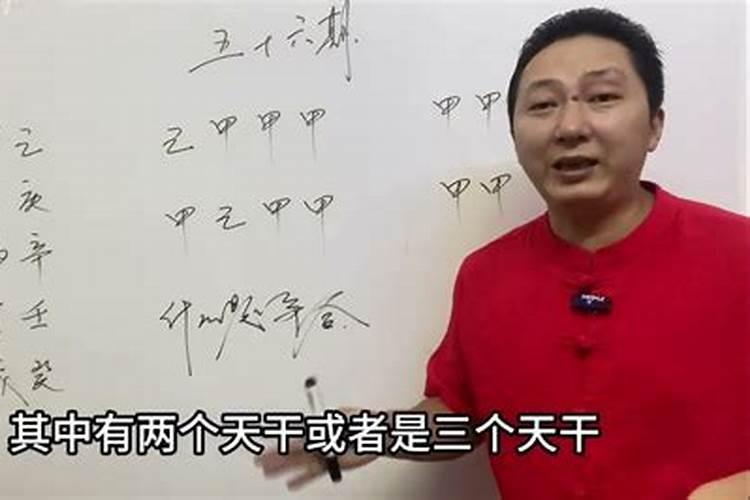 五十六期
己甲甲甲
甲甲
甲己甲甲
甲甲
什么是争合
己
庚
辛
壬
癸
其中有两个天干或者是三个天干